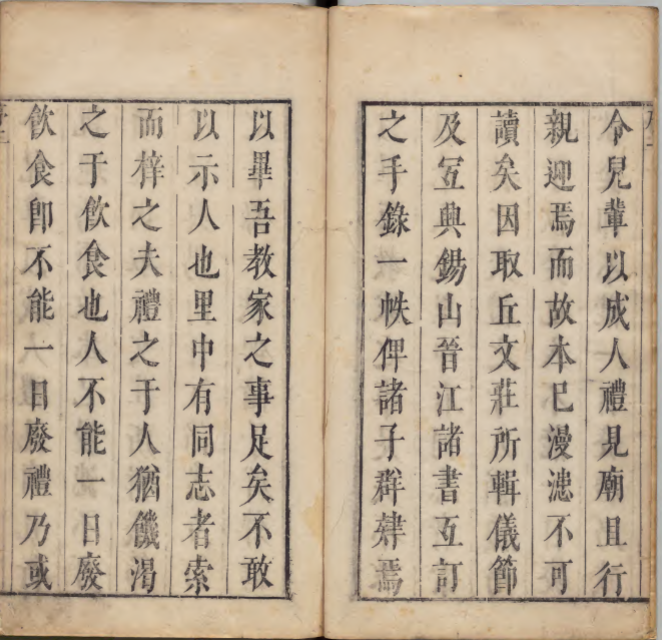 令兒輩以成人禮見廟且行
親迎焉而故本已漫漶不可
讀矣因取丘文莊所輯儀節
及宜典錫山晉江諸書互訂
之手錄一帙俾諸子群肄焉
以畢吾教家之事足矣不敢
以示人也里中有同志者索
而梓之夫禮之于人猶饑渴
之于飲食也人不能一日廢
飲食卽不能一日廢禮乃或